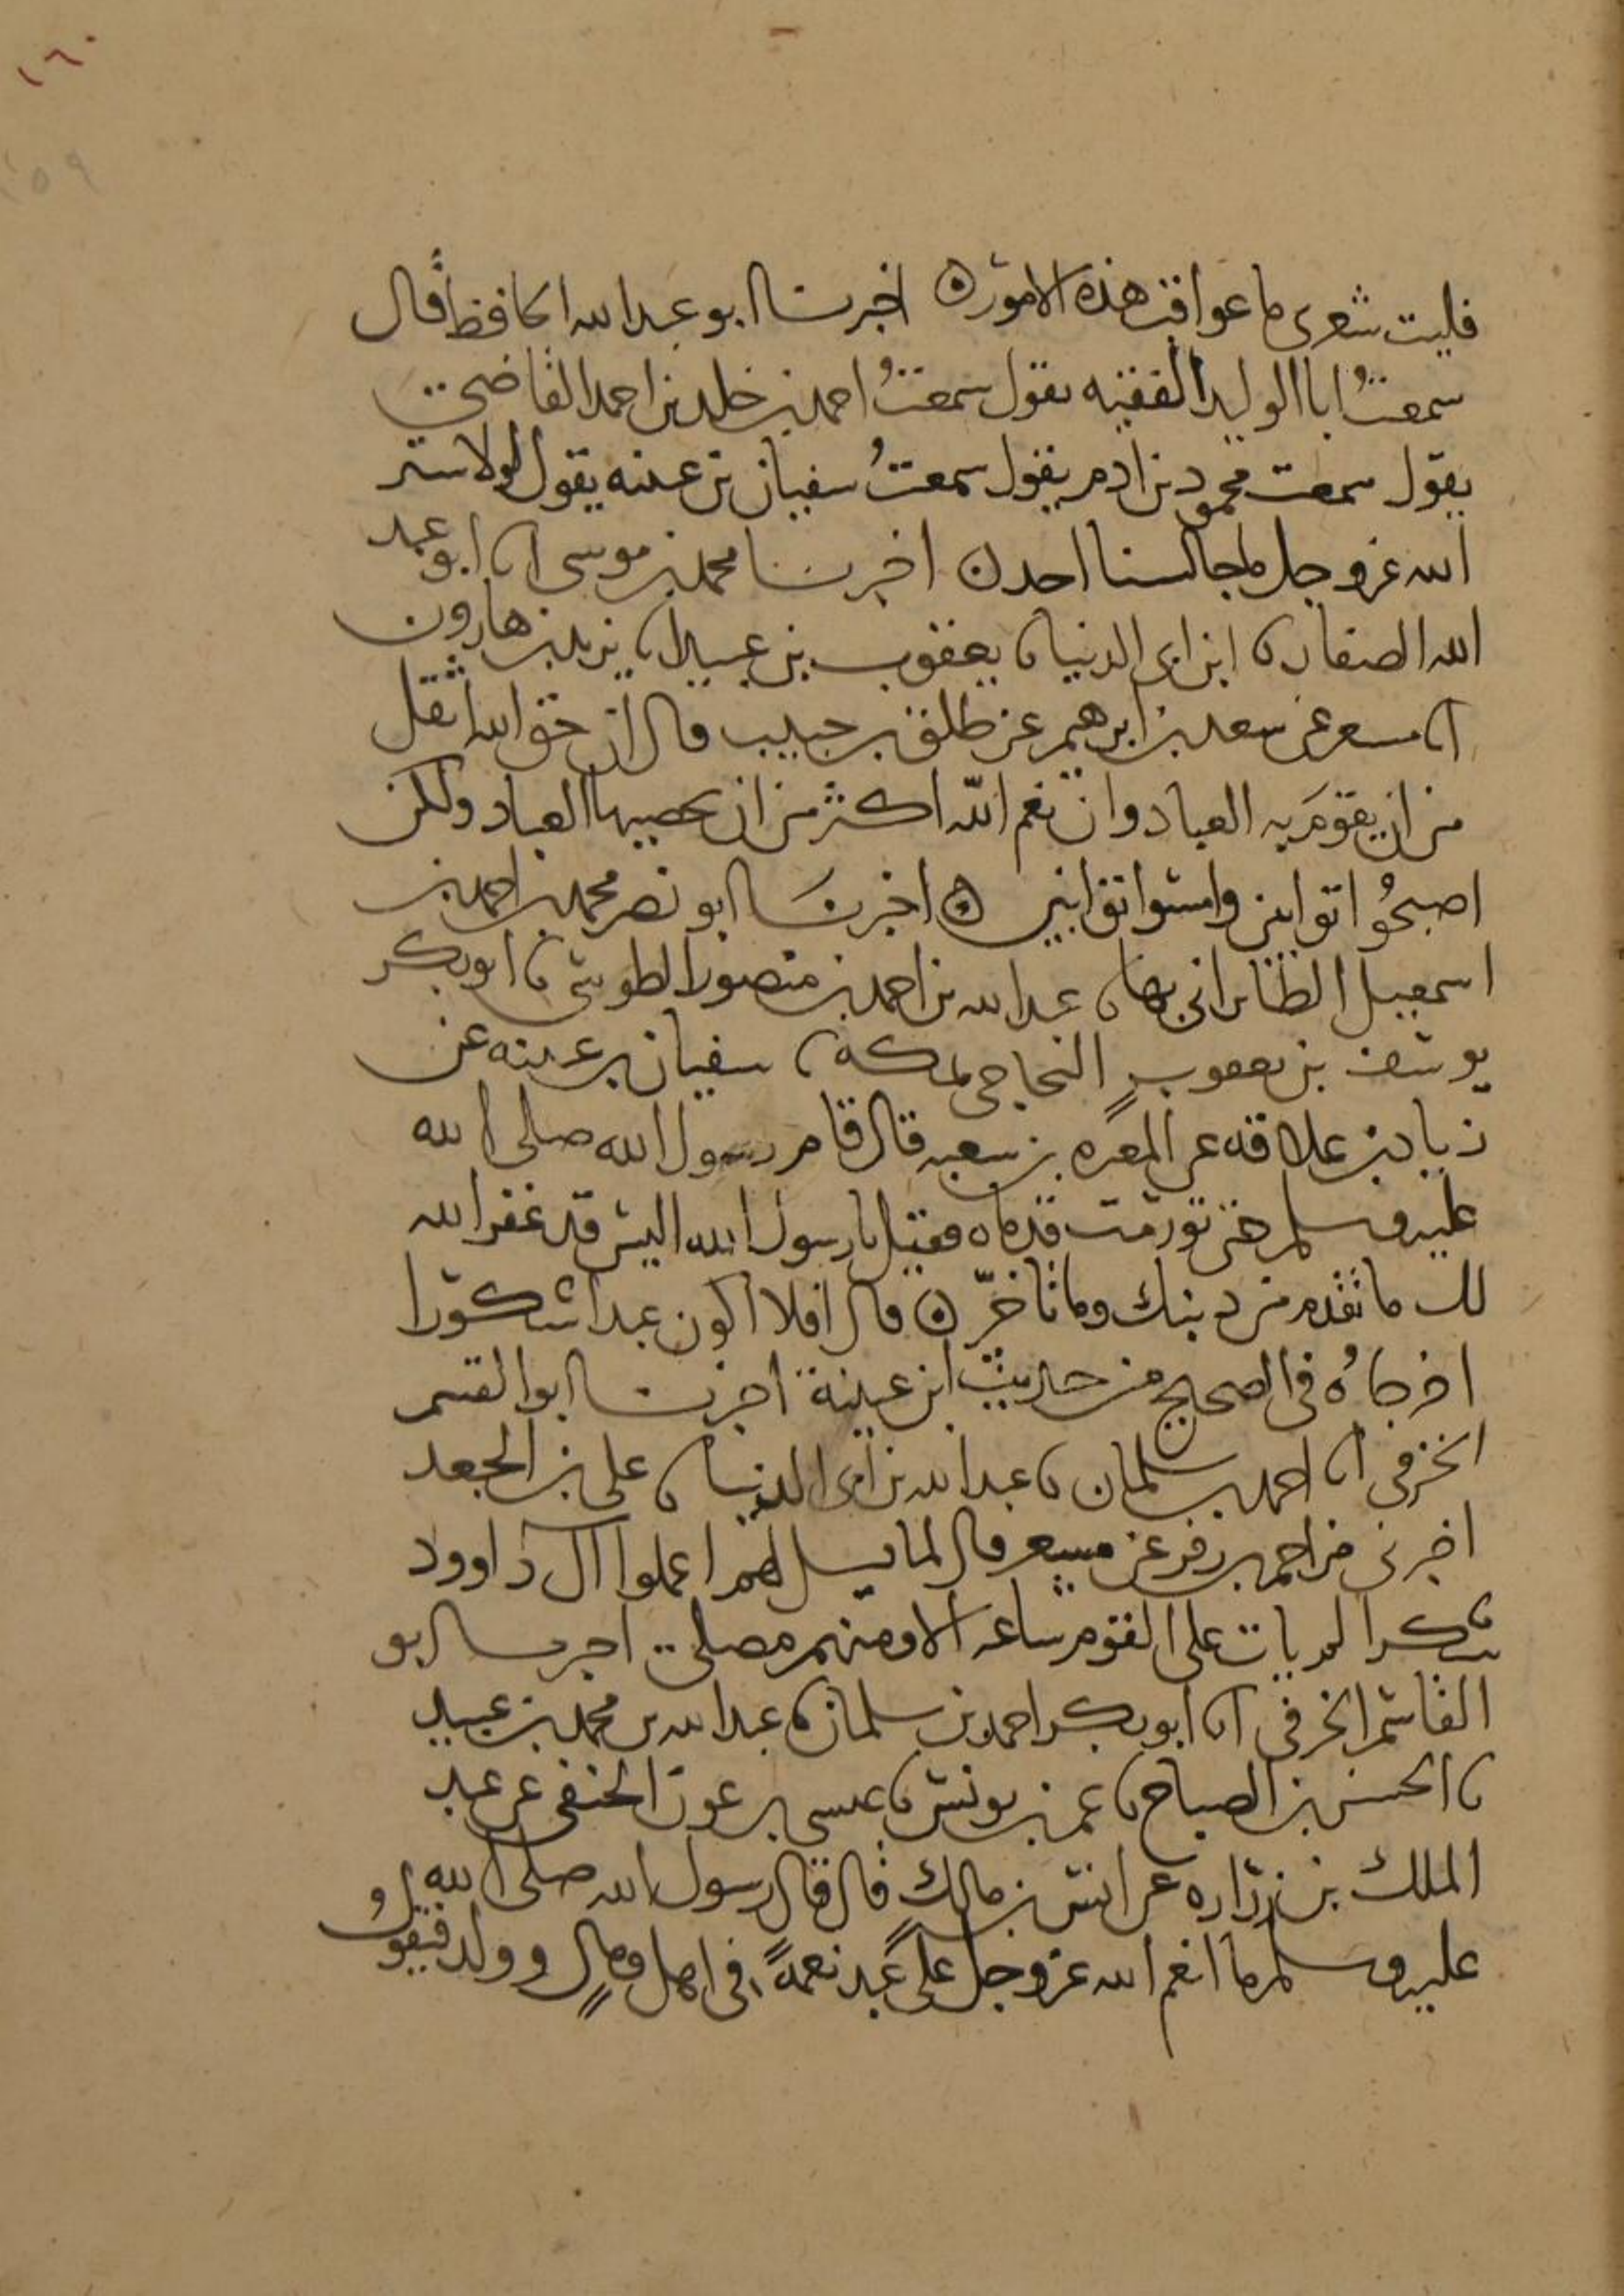 ١٦٠
١٥٩
فليت شعرى ما عواقب هذه الامور ه اخبرنا ابو عبد الله الحافظ قال
سمعتُ ابا الوليد الفقيه يقول سمعتُ احمد بن خلد بن احمد القاضى
يقول سمعت محمود بن ادم يقول سمعتُ سفيان بن عيينه يقول لولا ستر
الله عز وجل ما جالسنا احد ه اخبرنا محمد بن موسى انا ابو عبد
الله الصفار نا ابن ابى الدنيا نا يعقوب بن عبيد نا يزيد بن هارون
انا مسعر عن سعد بن ابرهيم عن طلق بن حبيب قال ان حق الله اثقل
من ان يقوم به العباد وان نعم الله اكثر من ان يحصيها العباد ولكن
اصبحُوا توابين وامسوا توابين ه اخبرنا ابو نصر محمد بن احمد بن
اسمعيل الطابرانى بها نا عبد الله بن احمد بن منصور الطوسى نا ابو بكر
يوسف بن يعقوب النجاحى بمكه نا سفيان بن عيينه عن
زياد بن علاقه عن المغيره بن شعبه قال قام رسول الله صلى الله
عليه وسلم حتى تورمت قدماه فقيل يا رسول الله اليس قد غفر الله
لك ما تقدم من ذنبك وما تاخّر ه قال افلا اكون عبدا شكورا
اخرجاهُ فى الصحيح من حديث ابن عيينة اخبرنا ابو القسم
الخرفى انا احمد بن سلمان نا عبد الله بن ابى الدنيا نا على بن الجعد
اخبرنى مزاحم بن زفر عن مسعر قال لما قيل لهم اعملوا آل داوود
شكرا لم يات على القوم ساعه الا ومنهم مصلى اخبرنا ابو
القاسم الخرفى انا ابو بكر احمد بن سلمان نا عبد الله بن محمد بن عبيد
نا الحسن بن الصباح نا عمر بن يونس نا عيسى بن عون الحنفى عن عبد
الملك بن زراره عن انس بن مالك قال قال رسول الله صلى الله
عليه وسلم ما انعم الله عز وجل على عبد نعمةً فى اهل ومالٍ وولد فيقولُ